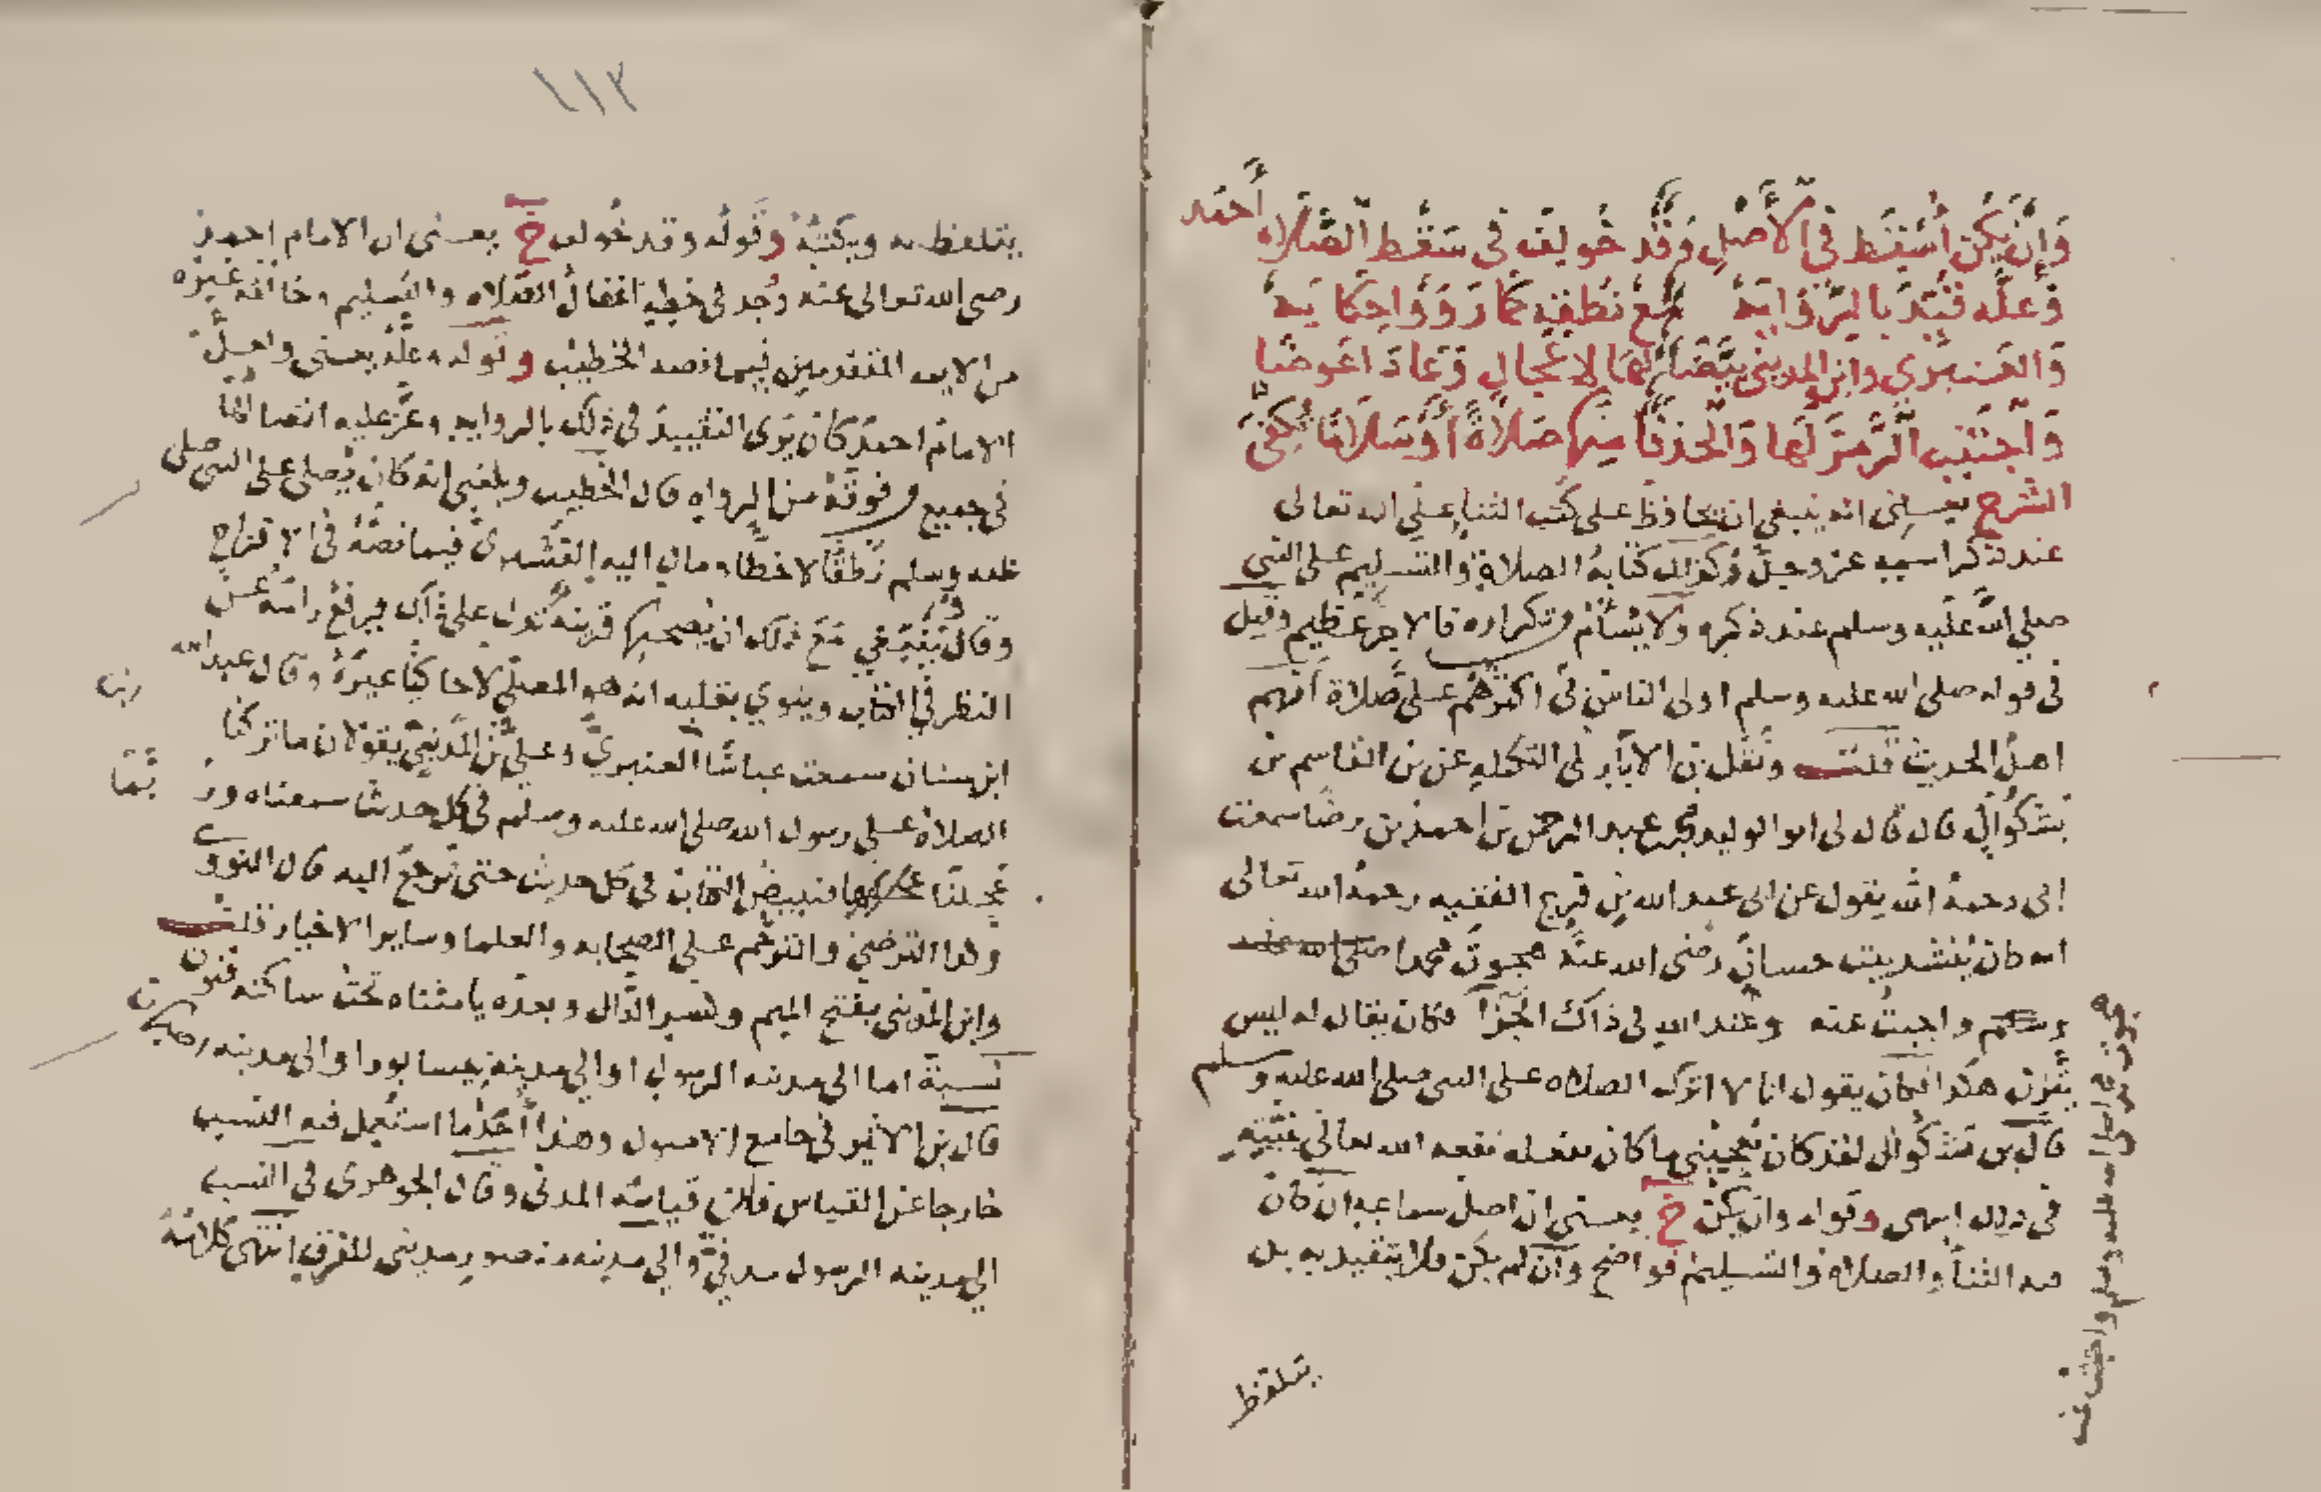 وَإِنْ يَكُنْ أُسْقِطَ فِي الأَصْلِ وَقَدْ خُولِفَ فِي سَقْطِ الصَّلَاهِ أَحْمَد
وَعَلَّهُ قَيَّدَ بِالرِّوَايَهْ مَعْ نُطْقِهِ كَمَا رَوَوْا حِكَايَهْ
وَالعَنْبَرِي وابن المديني بَيَّضَا لَهَا لِإِعْجَالٍ وَعَادَا عَوَّضَا
وَاجْتَنِبِ الرَّمْزَ لَهَا وَالحَذْفَا مِنْهَا صَلَاةً أَوْ سَلَامًا تُكْفَى
الشرح يعني انه ينبغي ان يحافظ على كتب الثناء على الله تعالى
عند ذكر اسمه عز وجل وكذلك كتابة الصلاة والتسليم على النبي
صلى الله عليه وسلم عند ذكره ولا يسأم وتكراره فالاجر عظيم وقيل
في قوله صلى الله عليه وسلم اولى الناس بي اكثرهم علي صلاة انهم
اهل الحديث قلت ونقل بن الابار في التكمله عن بن القاسم بن
بشكوال قال قال لي ابو الوليد عبد الرحمن بن احمد بن رضا سمعت
ابي رحمه الله يقول عن ابي عبد الله بن فرج الفقيه رحمه الله تعالى
انه كان ينشد بيت حسان رضي الله عنه هجوت محمدا صلى الله عليه
وسلم واجبت عنه وعند الله في ذاك الجزا فكان يقال له ليس
يتزن هكذا فكان يقول انا لا اترك الصلاه على النبي صلى الله عليه وسلم
قال بن بشكوال لقد كان يعجبني ما كان يفعله نفعه الله تعالى بنيته
في ذلك انتهى وقوله وان يكن خ يعني ان اصل سماعه ان كان
فيه الثنا والصلاه والتسليم فواضح وان لم يكن فلا يتقيد به بل
يتلفظ
١١٢
يتلفظ به ويكتبه وقوله وقد خولف خ يعني ان الامام احمد
رضي الله تعالى عنه وجد في خطه اغفال الصلاه والتسليم وخالفه غيره
من الايمه المتقدمين فيما قصه الخطيب وقوله وعله يعني ولعل
الامام احمد كان يرى التقييد في ذلك بالروايه وعز عليه اتصالها
في جميع من فوقه من الرواه قال الخطيب وبلغني انه كان يصلي على النبي صلى
عليه وسلم نطقا لا خطا ومال اليه القشيري فيما نصه في الاقتراح
وقال ينبغي مع ذلك ان يصحبها قرينة تدل على ذلك من رفع راسه عن
النظر في الكتاب وينوي بقلبه انه هو المصلي لا حاكيا غيره وقال عبد الله
ابن سنان سمعت عباسا العنبري وعلي بن المديني يقولان ما تركنا
الصلاة على رسول الله صلى الله عليه وسلم في كل حديث سمعناه وربما
عجلنا فنبيض الكتاب في كل حديث حتى نرجع اليه قال النووي
وكذا الترضي والترحم على الصحابه والعلما وساير الاخيار قلت
وابن المديني بفتح الميم وكسر الدال وبعده يا مثناه تحت ساكنه فنون
نسبة اما الى مدينه الرسول او الى مدينة نيسابور او الى مدينه
قال بن الاثير في جامع الاصول وهذا احد ما استعمل فيه النسب
خارجا عن القياس فان قياسه المدني وقال الجوهري في النسب
الى مدينه الرسول مدني والى مدينه منصور مديني للفرق انتهى كلامه